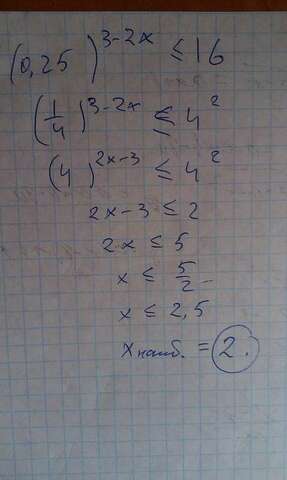 (0,25)^{3-2x} ≤ 16
(1/4)^{3-2x} ≤ 4^2
(4)^{2x-3} ≤ 4^2
2x-3 ≤ 2
2x ≤ 5
x ≤ 5/2
x ≤ 2,5
x наиб. = 2.